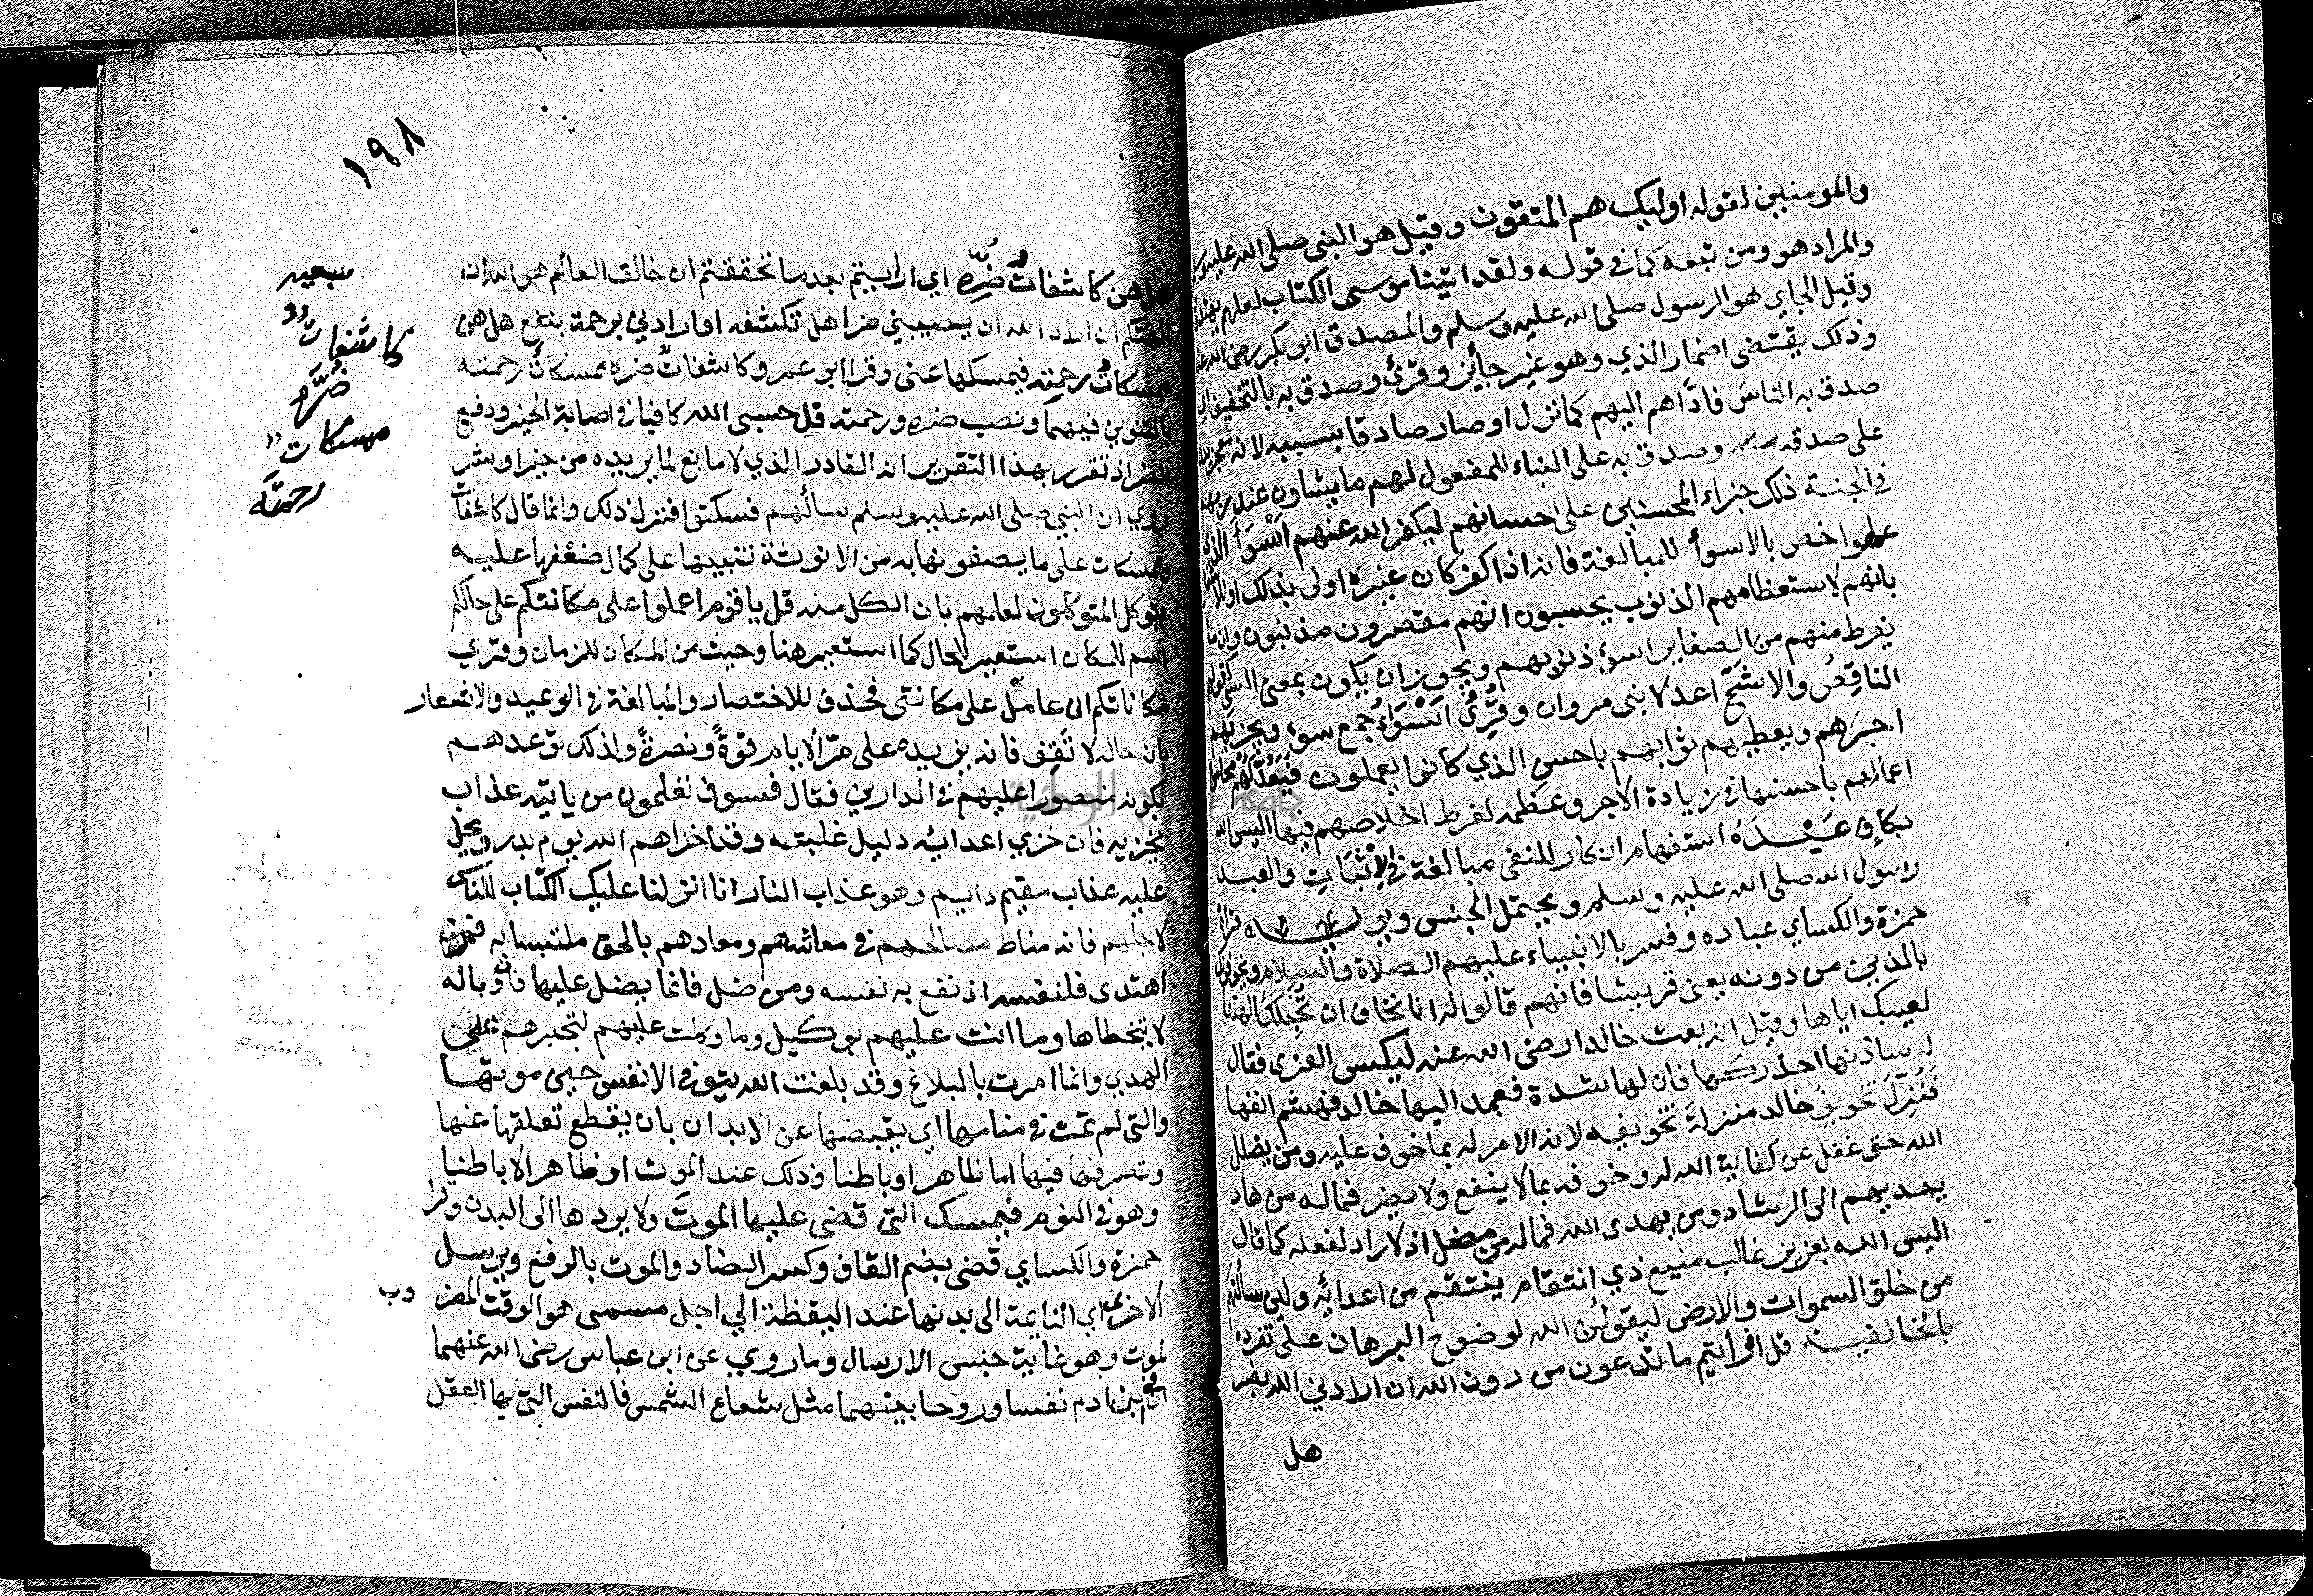 والمومنين لقوله اوليك هم المتقون وقيل هو النبي صلى الله عليه
والمراد هو ومن تبعه كما في قوله ولقد اتينا موسى الكتاب لعلهم يهتدون
وقيل الجاي هو الرسول صلى الله عليه وسلم والمصدق ابو بكر رضي الله عنه
وذلك يقتضى اضمار الذي وهو غير جائز وقرئ وصدق به بالتخفيف اي
صدق به الناس فادّاهم اليهم كما نزل او صار صادقا بسببه لانه معجز
على صدقه وصدق به على البناء للمفعول لهم ما يشاون عند ربهم
في الجنة ذلك جزاء المحسنين على احسانهم ليكفر الله عنهم اسْوَأ الذي
عملوا خص بالاسوأ للمبالغة فانه اذا كفر كان غيره اولى بذلك او للاشعار
بانهم لاستعظامهم الذنوب يحسبون انهم مقصرون مذنبون وان ما
يفرط منهم من الصغاير اسوء ذنوبهم ويجوز ان يكون بمعنى السي كقولهم
الناقِصُ والاشَجّ اعدلا بنى مروان وقُرِئَ اَسْوَاءَ جمع سوء ويجزيهم
اجرهم ويعطيهم ثوابهم باحسن الذي كانوا يعملون فَيَعُدُّ لهم محاسن
اعمالهم باحسنها في زيادة الاجر وعظمه لفرط اخلاصهم فيها اليس الله
بكافٍ عَبْدَهُ استفهام انكار للنفى مبالغة في الاثبات والعبد
رسول الله صلى الله عليه وسلم ويحتمل الجنس ويو قراة
حمزة والكساي عباده وفسر بالانبياء عليهم الصلاة والسلام ويخوفونك
بالذين من دونه يعني قريشا فانهم قالوا له انا نخاف ان تخبلك الهتنا
لعيبك اياها وقيل انه بعث خالدا رضى الله عنه ليكسر العزى فقال
له سادنها احذركها فان لها شدة فعمد اليها خالد فهشم انفها
فَنَزَّلَ تخويفَ خالد منزلةَ تخويفه لانه الامر له بما خوف عليه ومن يضلل
الله حتى غفل عن كفاية الله له وخوفه بما لا ينفع ولا يضر فما له من هاد
يهديهم الى الرشاد ومن يهدى الله فما له من مضل اذ لا راد لفعله كما قال
اليس الله بعزيز غالب منيع ذي انتقام ينتقم من اعدائه ولين سالتهم
من خلق السموات والارض ليقولن الله لوضوح البرهان على تفرده
بالخالقية قل افرأيتم ما تدعون من دون الله ان ارادني الله بضر
هل
١٩٨
هل هن كاشفاتُ ضُرِّه اي ارايتم بعد ما تحققتم ان خالق العالم هو الله ان
الهتكم ان اراد الله ان يصيبني ضرا هل تكشفه او ارادني برحمة بنفع هل هن
ممسكاتُ رحمتِه فيمسكها عنى وقرا ابو عمرو كاشفاتٌ ضره ممسكاتٌ رحمته
بالتنوين فيهما ونصب ضره ورحمته قل حسبى الله كافيا في اصابة الخير ودفع
الضر اذ تقرر بهذا التقرير انه القادر الذي لا مانع لما يريده من خير او شر
روي ان النبي صلى الله عليه وسلم سألهم فسكتوا فنزل ذلك وانما قال كاشفات
وممسكات على ما يصفونها به من الانوثة تنبيها على كمال ضعفها عليه
يتوكل المتوكلون لعلمهم بان الكل منه قل يا قوم اعملوا على مكانتكم على حالكم
اسم للمكان استعير للحال كما استعير هنا وحيث من المكان للزمان وقري
مكاناتكم اني عامل على مكانتى فحذف للاختصار والمبالغة في الوعيد والاشعار
بان حاله لا تقف فانه يزيده على مرّ الايام قوةً ونصرةً ولذلك توعدهم
بكونه منصورا عليهم في الدارين فقال فسوف تعلمون من ياتيه عذاب
يخزيه فان خزي اعدائه دليل غلبته وقد اخزاهم الله يوم بدر ويحل
عليه عذاب مقيم دايم وهو عذاب النار انا انزلنا عليك الكتاب للناس
لاجلهم فانه مناط مصالحهم في معاشهم ومعادهم بالحق ملتبسا به فمن
اهتدى فلنفسه اذ نفع به نفسه ومن ضل فانما يضل عليها فان وباله
لا يتخطاها وما انت عليهم بوكيل وما وكلت عليهم لتجبرهم على
الهدي وانما امرت بالبلاغ وقد بلغت الله يتوفى الانفس حين موتها
والتى لم تمت في منامها اي يقبضها عن الابدان بان يقطع تعلقها عنها
وتصرفها فيها اما ظاهرا وباطنا وذلك عند الموت او ظاهرا لا باطنا
وهو في النوم فيمسك التى قضى عليها الموتَ ولا يردها الى البدن وقرا
حمزة والكساي قضى بضم القاف وكسر الضاد والموت بالرفع ويرسل
الاخرى اي النايمة الى بدنها عند اليقظة الي اجل مسمى هو الوقت المضروب
لموت وهو غاية جنس الارسال وما روي عن ابن عباس رضى الله عنهما
ان في بني ادم نفسا وروحا بينهما مثل شعاع الشمس فالنفس التى بها العقل
كاشفاتٌ
ضُرَّه
ممسكات
رحمتَه